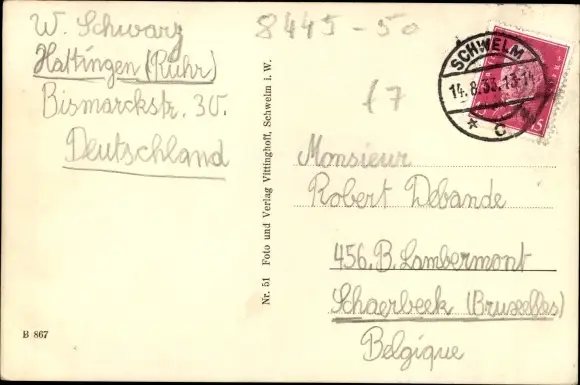 W. Schwarz
Hattingen (Ruhr)
Bismarckstr. 30.
Deutschland
8445-50
17
SCHWELM
14.8.33.13-14
* C
15
Monsieur
Robert Debande
456.B.Lambermont
Schaerbeek (Bruxelles)
Belgique
Nr. 51 Foto und Verlag Vittinghoff, Schwelm i. W.
B 867